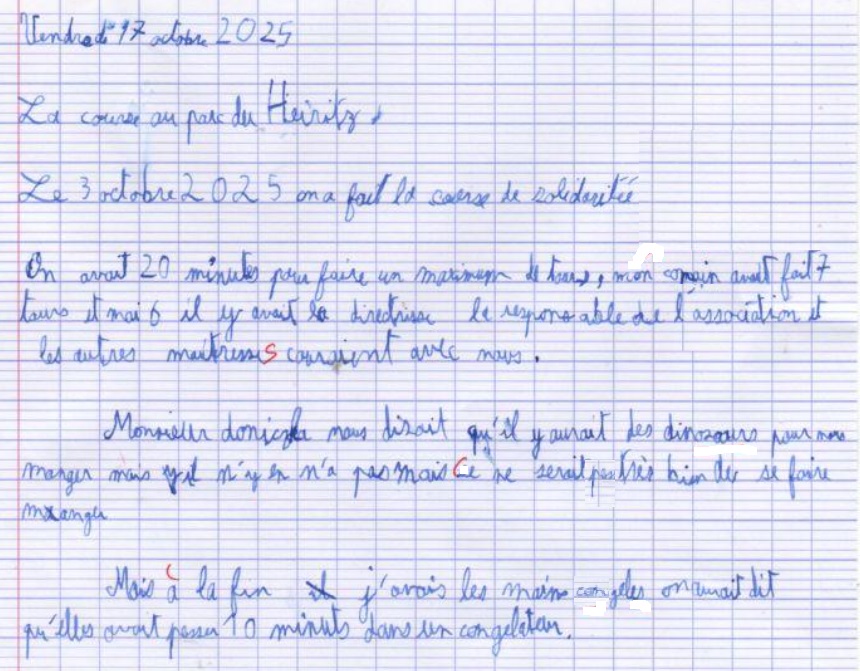 Vendredi 17 octobre 2025
La course au parc du Heiritz.
Le 3 octobre 2025 on a fait la course de solidaritié
On avait 20 minutes pour faire un maximum de tours, mon copain avait fait 7
tours et moi 6 il y avait la directrisse le responsable de l'association et
les autres maitresses couraient avec nous.
Monsieur nous dizait qu'il y aurait des dinozaurs pour nous
manger mais il n'y en n'a pas mais Ce ne serait pas très bien de se faire
manger
Mais à la fin j'avais les mains congeles on aurait dit
qu'elles avait passer 10 minuts dans un congelateur.